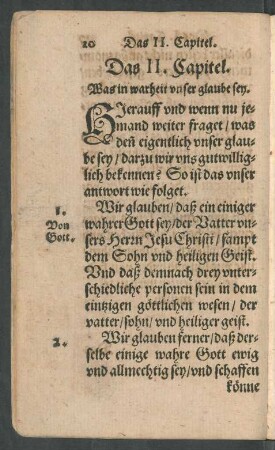 20 Das II. Capitel.
Das II. Capitel.
Was in warheit vnser glaube sey.
Hierauff vnd wenn nu je-
mand weiter fraget / was
deñ eigentlich vnser glau-
be sey / darzu wir vns gutwillig-
lich bekennen? So ist das vnser
antwort wie folget.
1. Wir glauben / daß ein einiger
Von wahrer Gott sey / der Vatter vn-
Gott. sers Herrn Jesu Christi / sampt
dem Sohn vnd heiligen Geist.
Vnd daß demnach drey vnter-
schiedliche personen sein in dem
eintzigen göttlichen wesen / der
vatter / sohn / vnd heiliger geist.
2. Wir glauben ferner / daß der-
selbe einige wahre Gott ewig
vnd allmechtig sey / vnd schaffen
könne